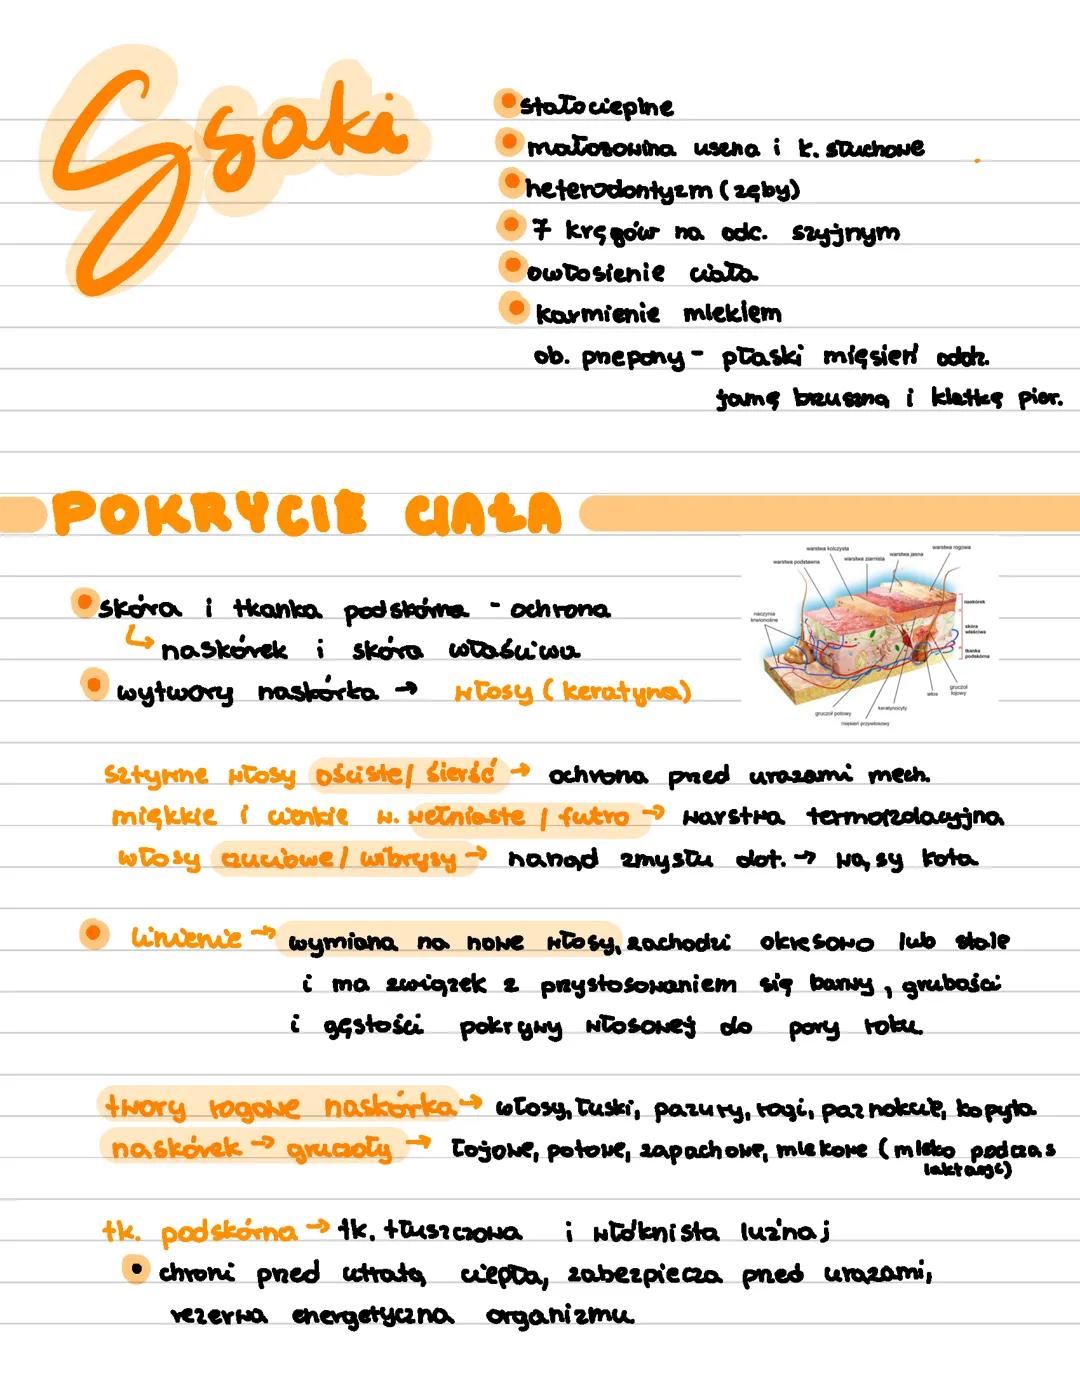 Ssaki
stałocieplne
małżowina uszna i k. słuchowe
heterodontyzm (zęby)
7 kręgów na odc. szyjnym
owłosienie ciała
karmienie mlekiem
ob. przepony - płaski mięsień oddz.
jamę brzuszną i klatkę pier.
POKRYCIE CIAŁA
warstwa kolczysta
warstwa rogowa
warstwa podstawna
warstwa ziarnista
warstwa jasna
naskórek
naczynia krwionośne
skóra właściwa
tkanka podskórna
włos
gruczoł łojowy
gruczoł potowy
keratynocyty
mięsień przywłosowy
skóra i tkanka podskórna - ochrona
↳ naskórek i skóra właściwa
wytwory naskórka → włosy (keratyna)
sztywne włosy ościste/ sierść → ochrona przed urazami mech.
miękkie i cienkie w. wełniaste / futro → warstwa termoizolacyjna
włosy czuciowe/ wibrysy → narząd zmysłu dot. → wąsy kota
linienie → wymiana na nowe włosy, zachodzi okresowo lub stale
i ma związek z przystosowaniem się barwy, grubości
i gęstości pokrywy włosowej do pory roku
twory rogowe naskórka → włosy, łuski, pazury, rogi, paznokcie, kopyta
naskórek → gruczoły → łojowe, potowe, zapachowe, mlekowe (mleko podczas
laktacji)
tk. podskórna → tk. tłuszczowa i włóknista luźnaj
chroni przed utratą ciepła, zabezpiecza przed urazami,
rezerwa energetyczna organizmu